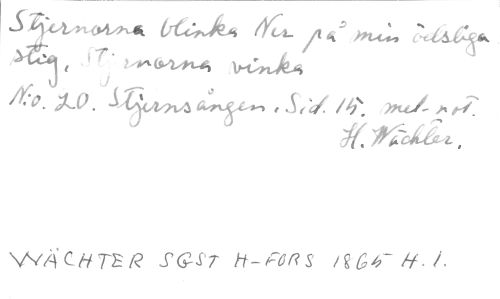 Stjernorna blinka Ner på min ödsliga
stig, Stjernorna vinka
N:o. 20. Stjernsången. Sid. 15. mel. not.
H. Wächter.
WÄCHTER SGST H-FORS 1865 H. 1.